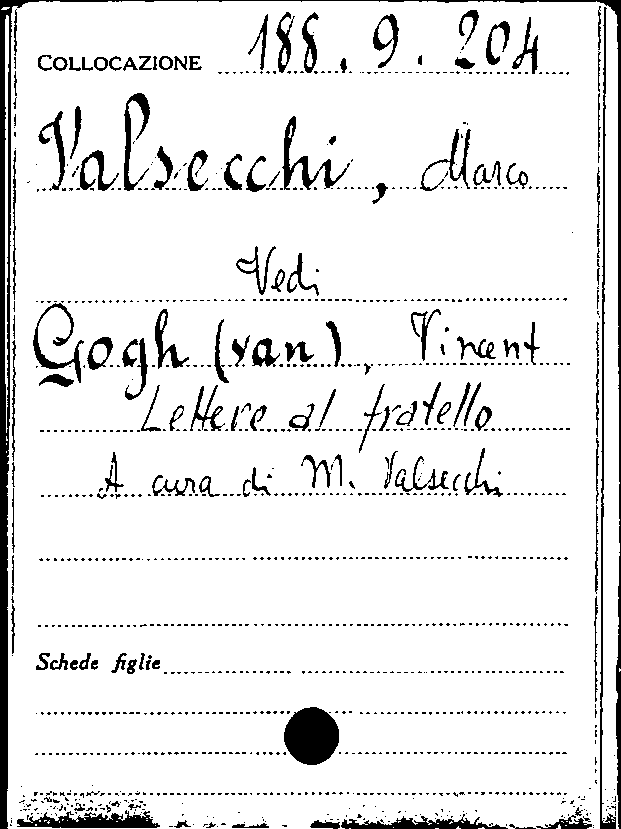 COLLOCAZIONE 188.9.204
Valsecchi, Marco
Vedi
Gogh (van), Vincent
Lettere al fratello
A cura di M. Valsecchi
Schede figlie